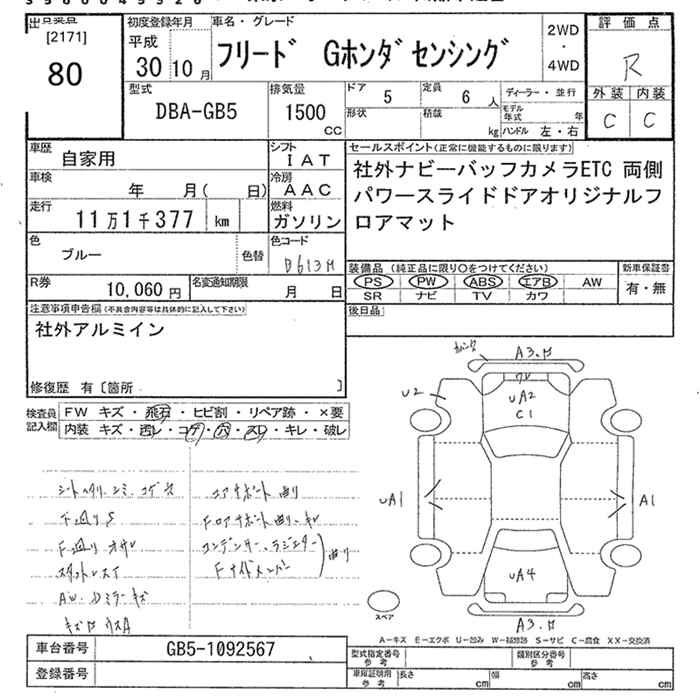 [2171]
80
初度登録年月
平成
30 10 月
車名・グレード
フリード Gホンダセンシング
2WD
・
4WD
評価点
R
外装 内装
C C
型式
DBA-GB5
排気量
1500
cc
ドア
5
定員
6 人
形状
積載
kg
ディーラー・並行
モデル年式 年
ハンドル 左・右
車歴
自家用
シフト
I A T
車検
年 月( 日)
冷房
A A C
走行
11万1千377 km
燃料
ガソリン
色
ブルー
色替
色コード
B613M
R券
10,060 円
名変通知期限
月 日
セールスポイント(正常に機能するものに限ります)
社外ナビーバッフカメラETC 両側
パワースライドドアオリジナルフ
ロアマット
装備品 (純正品に限り○をつけてください)
PS PW ABS エアB AW
SR ナビ TV カワ
新車保証書
有・無
後日品
注意事項申告欄(不具合内容等は具体的に記入して下さい)
社外アルミイン
修復歴 有〔箇所 〕
検査員
記入欄
FW キズ・飛石・ヒビ割・リペア跡・×要
内装 キズ・汚レ・コゲ・穴・スレ・キレ・破レ
コアサポート曲り
コンデンサー、ラジエター
曲り
U2
UA2
C1
UA1
A1
UA4
スペア
A-キズ E-エクボ U-凹み W-補修跡 S-サビ C-腐食 XX-交換済
車台番号
GB5-1092567
登録番号
型式指定番号
参考
類別区分番号
参考
車庫証明用
参考
長さ cm
幅 cm
高さ cm